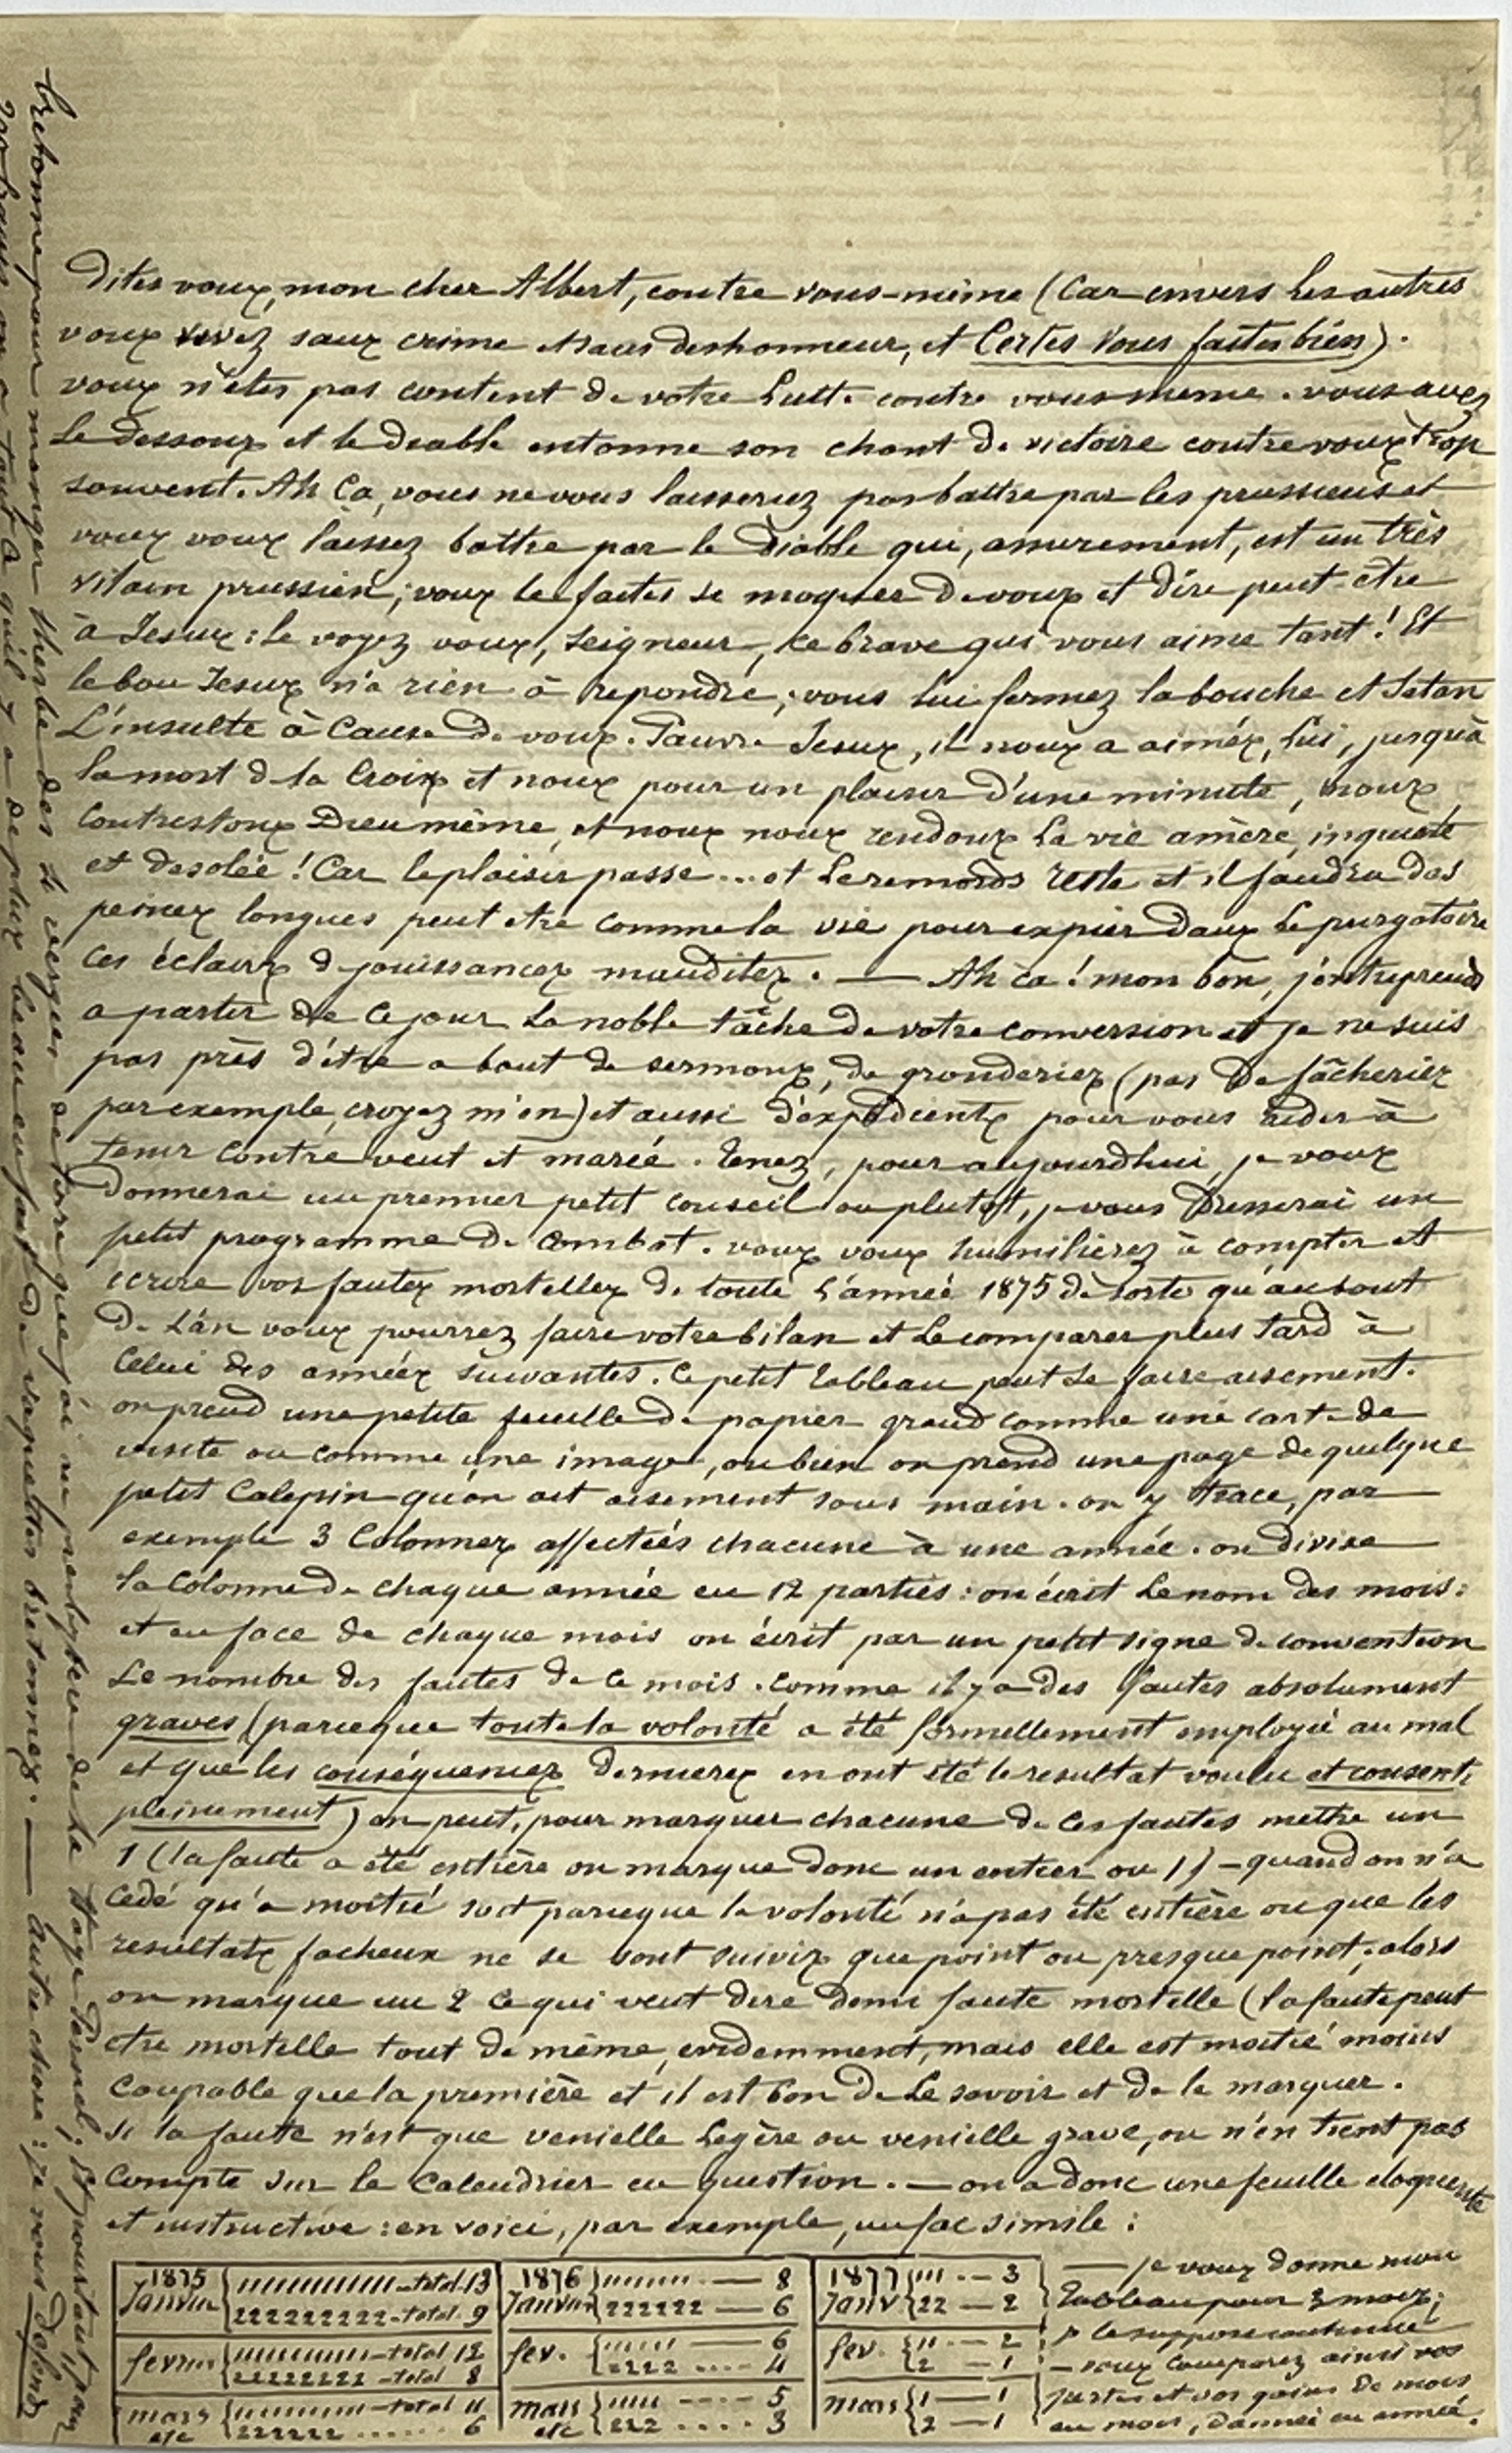 Dites vous, mon cher Albert, contre vous-même (Car envers les autres
vous vivez sans crime et sans deshonneur, et Certes vous faites bien).
vous n'êtes pas content de votre Lutte contre vous meme. vous avez
le dessous et le Diable entonne son chant de victoire contre vous trop
souvent. Ah Ca, vous ne vous laisseriez pas battre par les prussiens et
vous vous laissez battre par le Diable qui, assurement, est un très
vilain prussien; vous le faites se moquer de vous et dire peut-etre
à Jesus: le voyez vous, Seigneur, ce brave qui vous aime tant! Et
le bon Jesus n'a rien à repondre; vous lui fermez la bouche et Satan
L'insulte à Cause de vous. Pauvre Jesus, il nous a aimés, Lui, jusqu'à
la mort d la Croix et nous pour un plaisir d'une minute, nous
Contristons Dieu même, et nous nous rendons la vie amère, inquiete
et desolée! Car le plaisir passe... et le remords reste et il faudra des
peines longues peut etre comme la vie pour expier dans Le purgatoire
Ces éclairs d jouissances maudites. — Ah ca! mon bon, j'entreprends
a partir de ce jour La noble tâche de votre conversion et je ne suis
pas près d'être a bout de sermons, de gronderies (pas De fâcheries
par exemple, croyez m'en) et aussi d'expédients pour vous aider à
tenir Contre vent et marée. Tenez, pour aujourdhui, je vous
Donnerai un premier petit conseil ou plutot, je vous Dresserai un
petit programme De Combat. vous vous humilierez à compter et
ecrire vos fautes mortelles de toute l'année 1875 de sorte qu'au bout
De L'an vous pourrez faire votre bilan et le comparer plus tard à
Celui des années suivantes. Ce petit tableau peut se faire aisement.
on prend une petite feuille de papier grand comme une carte de
visite ou comme une image, ou bien on prend une page de quelque
petit Calepin qu'on ait aisement sous main. on y trace, par
exemple 3 Colonnes affectées chacune à une année. on divise
la Colonne de chaque année en 12 parties: on écrit Le nom des mois:
et en face de chaque mois on écrit par un petit signe de convention
Le nombre des fautes de ce mois. comme il y a des fautes absolument
graves (parceque toute la volonté a été formellement employée au mal
et que les conséquences dernieres en ont été le resultat voulu et consenti
pleinement) on peut, pour marquer chacune de ces fautes mettre un
1 (la faute a été entière on marque donc un entier ou 1) - quand on n'a
Cedé qu'a moitié soit parceque la volonté n'a pas été entière ou que les
resultats facheux ne se sont suivis que point ou presque point, alors
on marque un 2 ce qui veut dire demi faute mortelle (la faute peut
etre mortelle tout de même, evidemment, mais elle est moitié moins
Coupable que la première et il est bon de Le savoir et de le marquer.
Si la faute n'est que venielle Legère ou venielle grave, on n'en tient pas
Compte sur le Calendrier en question. — on a donc une feuille eloquente
et instructive: en voici, par exemple, un fac simile:
1875 Janvier 11111111111 - total 13
222222222 - total 9
fevrier 11111111111 - total 12
22222222 - total 8
mars 1111111111 - total 11
etc 222222 ...... 6
1876 Janvier 11111111 — 8
222222 — 6
fev. 111111 — 6
2222 .... 4
mars 11111 .... 5
etc 222 .... 3
1877 Janv 111 .. — 3
22 — 2
fev. 11 .. — 2
2 — 1
mars 1 — 1
2 — 1
— Je vous donne mon
Tableau pour 3 mois;
je le suppose continué
— vous Comparez ainsi vos
pertes et vos gains De mois
en mois, d'année en année.
bretonne pour manger l'herbe des
que j'ai au presbytère de la
et pourtant
qu'il y a de plus beau en fait de vaquettes bretonnes. — Autre chose: je vous défends